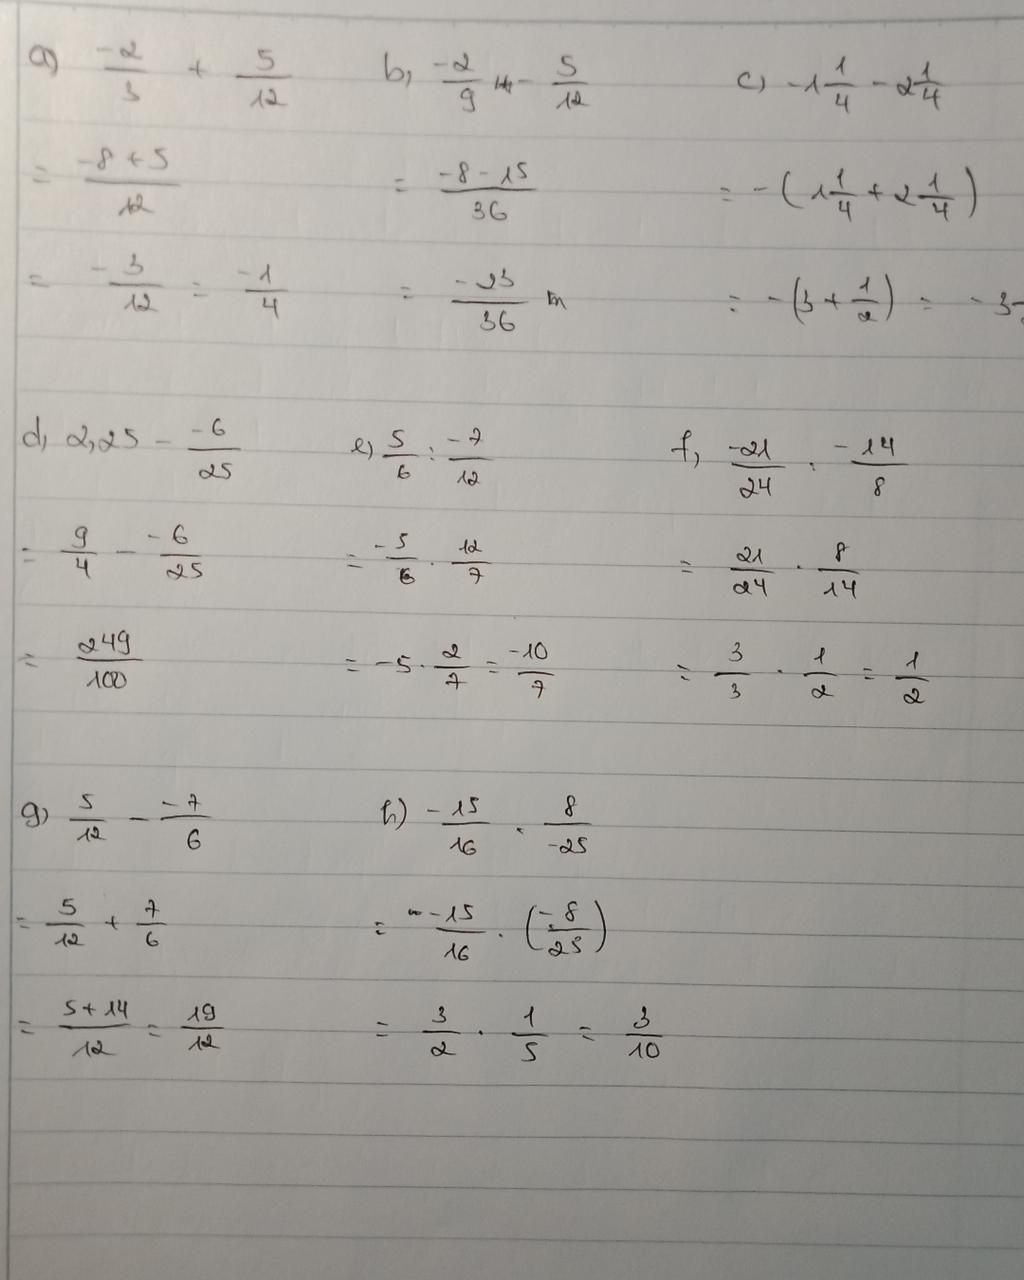 a) -2/3 + 5/12
= (-8 + 5)/12
= -3/12 = -1/4
b, -2/9 - 5/12
= (-8 - 15)/36
= -23/36
c, -1 1/4 - 2 1/4
= -(1 1/4 + 2 1/4)
= -(3 + 1/2) = -3
d, 2,25 - -6/25
= 9/4 - -6/25
= 249/100
e, 5/6 : -7/12
= -5/6 . 12/7
= -5 . 2/7 = -10/7
f, -21/24 : -14/8
= 21/24 . 8/14
= 3/3 . 1/2 = 1/2
g, 5/12 - -7/6
= 5/12 + 7/6
= (5 + 14)/12 = 19/12
h) -15/16 . 8/-25
= -15/16 . (-8/25)
= 3/2 . 1/5 = 3/10